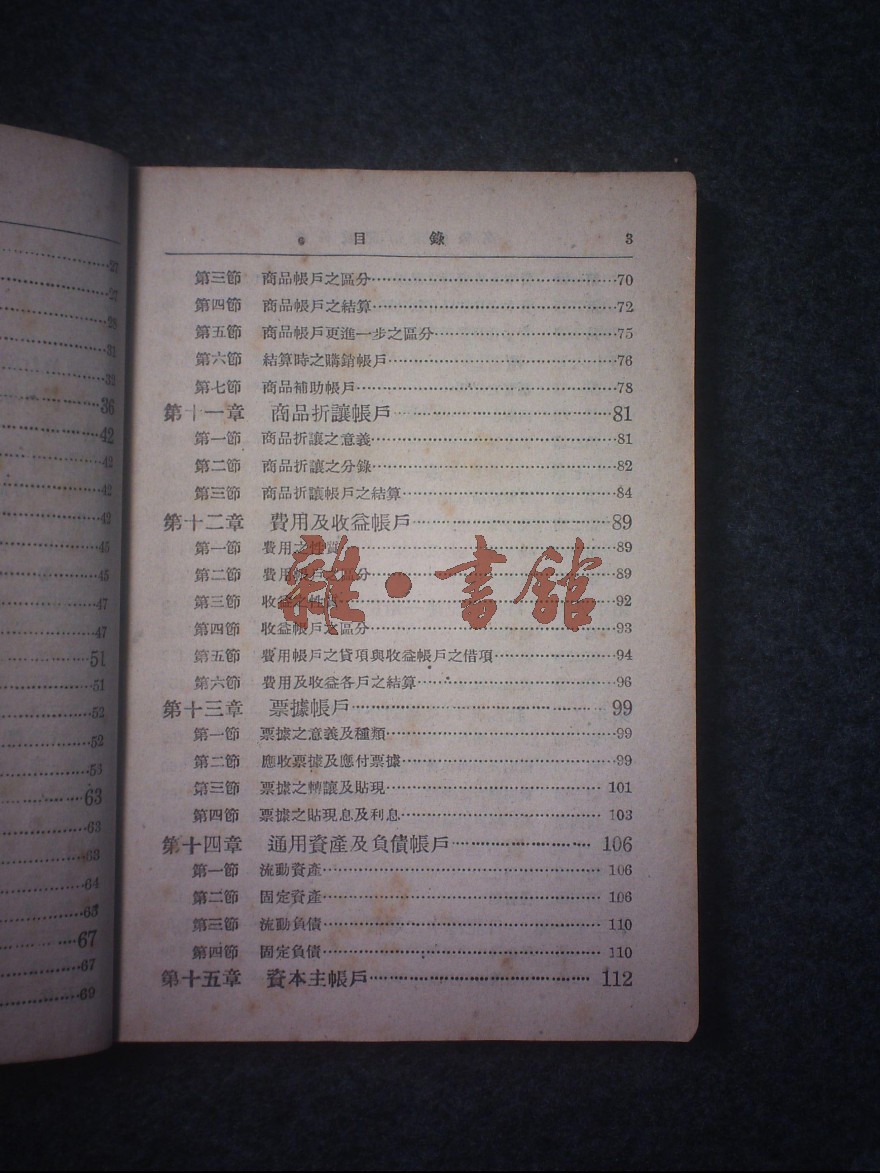 27
27
28
31
33
36
42
42
42
42
45
45
47
47
51
51
53
52
53
63
63
63
64
65
67
67
69
目錄 3
第三節 商品帳戶之區分 70
第四節 商品帳戶之結算 72
第五節 商品帳戶更進一步之區分 75
第六節 結算時之購銷帳戶 76
第七節 商品補助帳戶 78
第十一章 商品折讓帳戶 81
第一節 商品折讓之意義 81
第二節 商品折讓之分錄 82
第三節 商品折讓帳戶之結算 84
第十二章 費用及收益帳戶 89
第一節 費用之性質 89
第二節 費用帳戶之區分 89
第三節 收益之性質 92
第四節 收益帳戶之區分 93
第五節 費用帳戶之貸項與收益帳戶之借項 94
第六節 費用及收益各戶之結算 96
第十三章 票據帳戶 99
第一節 票據之意義及種類 99
第二節 應收票據及應付票據 99
第三節 票據之轉讓及貼現 101
第四節 票據之貼現息及利息 103
第十四章 通用資產及負債帳戶 106
第一節 流動資產 106
第二節 固定資產 106
第三節 流動負債 110
第四節 固定負債 110
第十五章 資本主帳戶 112
雜·書館